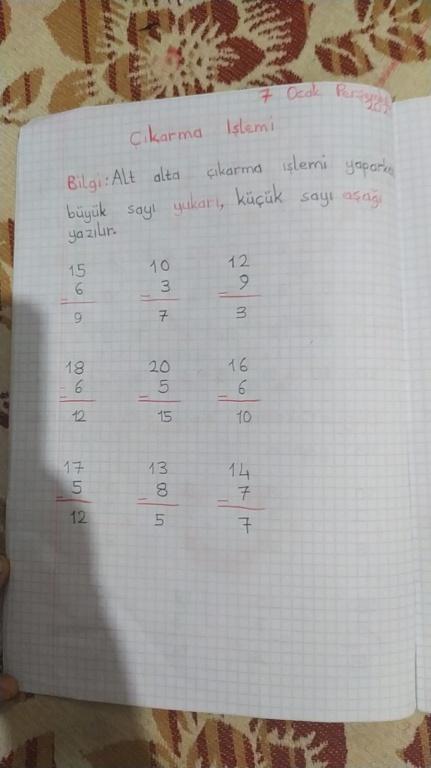 7 Ocak Perşembe
Çıkarma İşlemi
Bilgi: Alt alta çıkarma işlemi yaparken
büyük sayı yukarı, küçük sayı aşağı
yazılır.
15 10 12
- 6 - 3 - 9
9 7 3
18 20 16
- 6 - 5 - 6
12 15 10
17 13 14
- 5 - 8 - 7
12 5 7